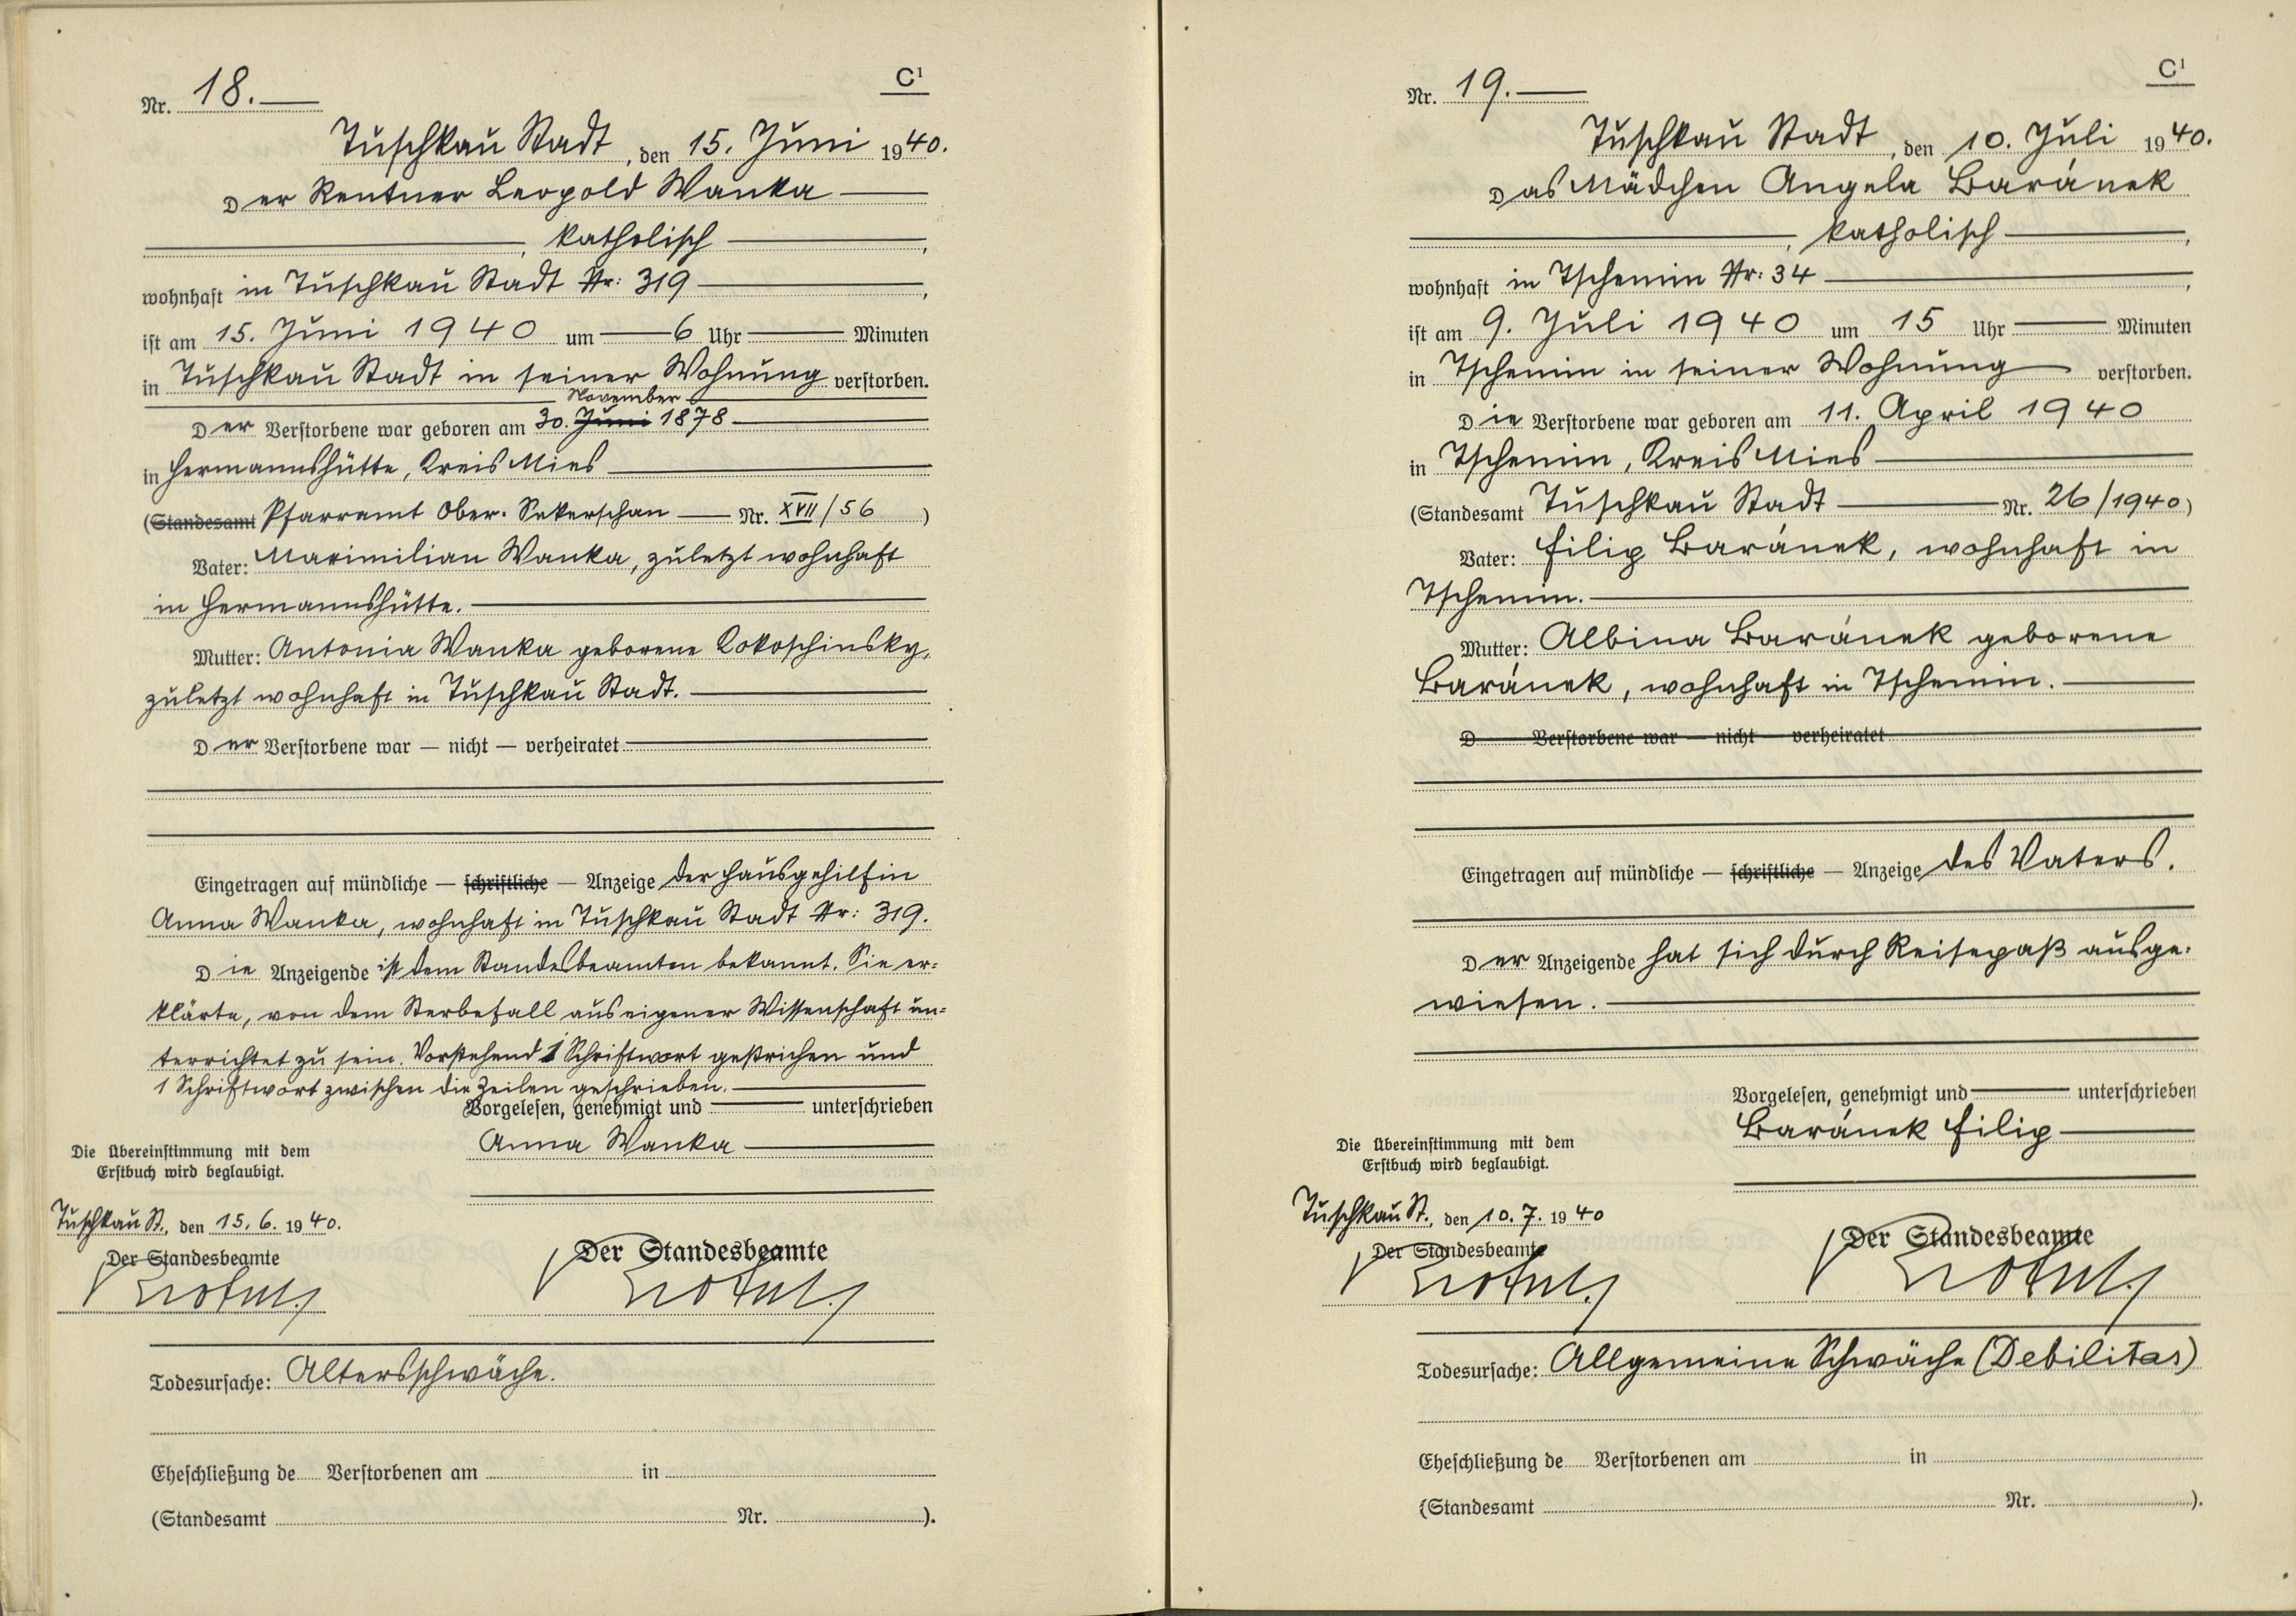 C¹
Nr. 18.
Tuschkau Stadt, den 15. Juni 1940.
Der Rentner Leopold Wanka
, katholisch,
wohnhaft in Tuschkau Stadt Nr: 319,
ist am 15. Juni 1940 um 6 Uhr Minuten
in Tuschkau Stadt in seiner Wohnung verstorben.
November
Der Verstorbene war geboren am 30. Juni 1878
in Hermannshütte, Kreis Mies
(Standesamt Pfarramt Ober-Sekerschan Nr. XVII/56)
Vater: Maximilian Wanka, zuletzt wohnhaft
in Hermannshütte.
Mutter: Antonia Wanka geborene Kokoschinsky,
zuletzt wohnhaft in Tuschkau Stadt.
Der Verstorbene war — nicht — verheiratet
Eingetragen auf mündliche — schriftliche — Anzeige der Hausgehilfin
Anna Wanka, wohnhaft in Tuschkau Stadt Nr: 319.
Die Anzeigende ist dem Standesbeamten bekannt. Sie er=
klärte, von dem Sterbefall aus eigener Wissenschaft un=
terrichtet zu sein. Vorstehend 1 Schriftwort gestrichen und
1 Schriftwort zwischen die Zeilen geschrieben.
Vorgelesen, genehmigt und unterschrieben
Anna Wanka
Die Übereinstimmung mit dem
Erstbuch wird beglaubigt.
Tuschkau St., den 15.6. 1940.
Der Standesbeamte
Der Standesbeamte
Todesursache: Altersschwäche.
Eheschließung de Verstorbenen am in
(Standesamt Nr. ).
C¹
Nr. 19.
Tuschkau Stadt, den 10. Juli 1940.
Das Mädchen Angela Baránek
, katholisch,
wohnhaft in Tschemin Nr: 34,
ist am 9. Juli 1940 um 15 Uhr Minuten
in Tschemin in seiner Wohnung verstorben.
Die Verstorbene war geboren am 11. April 1940
in Tschemin, Kreis Mies
(Standesamt Tuschkau Stadt Nr. 26/1940)
Vater: Filip Baránek, wohnhaft in
Tschemin.
Mutter: Albina Baránek geborene
Baránek, wohnhaft in Tschemin.
D Verstorbene war — nicht — verheiratet
Eingetragen auf mündliche — schriftliche — Anzeige des Vaters.
Der Anzeigende hat sich durch Reisepaß ausge-
wiesen.
Vorgelesen, genehmigt und unterschrieben
Baránek Filip
Die Übereinstimmung mit dem
Erstbuch wird beglaubigt.
Tuschkau St., den 10.7. 1940
Der Standesbeamte
Der Standesbeamte
Todesursache: Allgemeine Schwäche (Debilitas)
Eheschließung de Verstorbenen am in
(Standesamt Nr. ).